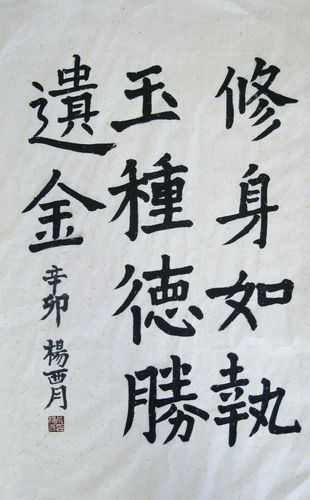 修身如執
玉種德勝
遺金
辛卯 楊